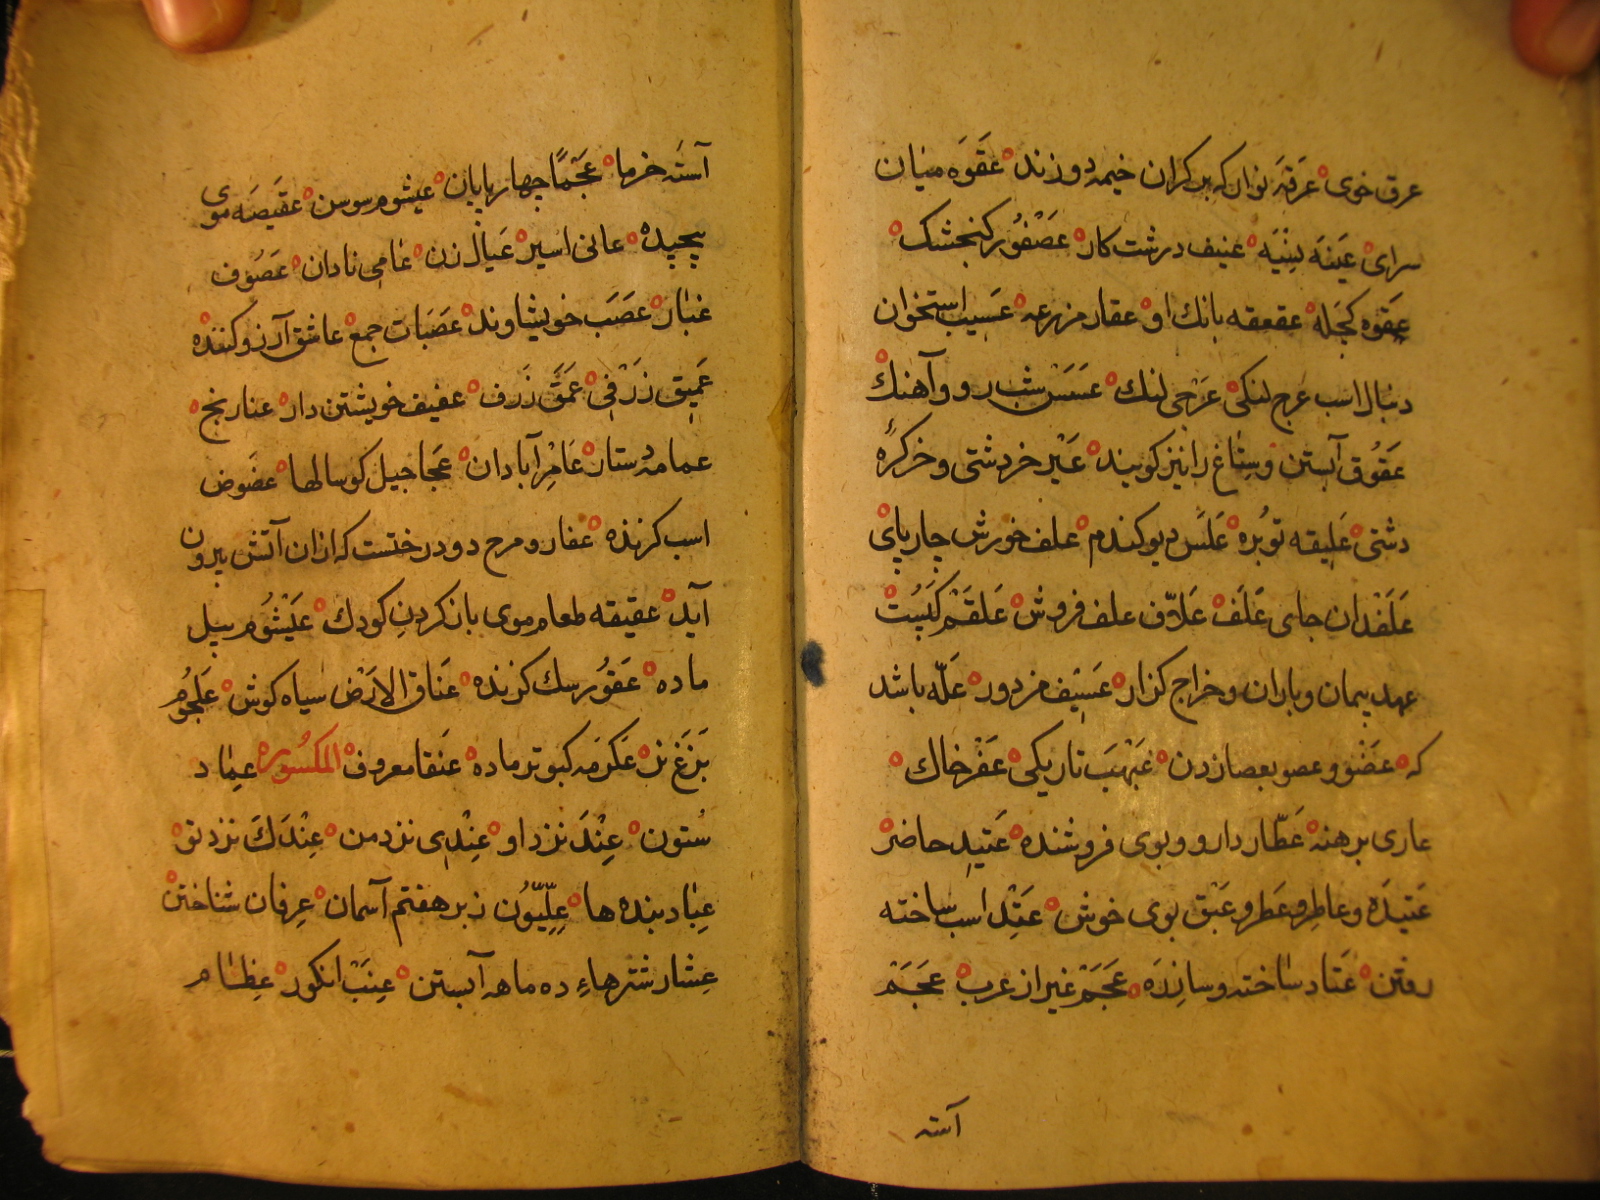 عرق خوی ه عَرَقَه نوان که بر کران خیمه دوزند ه عَقوَه میان
سرای ه عَیَنَه بِنْیَه ه عنیف درشت کار ه عَصْفُور کنجشک ه
عِقوَه کَجَله ه عقعقه بانك او ه عقار مزرعه ه عَسَیب استخوان
دنبال اسب عرج لنکی ه عَرَجی لنك ه عَسَسْ شب رو و آهنك ه
عَقُوق آبستن و ستاغ را نیز کویند ه عَیْر خر دشتی و خر کرّه
دشتی ه عَلیقه توُبره ه عَلَسْ دیو کندم ه علف خورش چارپای ه
عَلَفْدان جای عَلَف ه عَلاّف علف فروش ه عَلقَمْ کَبَست ه
عهد پیمان و باران و خراج کزار ه عَسیِف مزدور ه عَلّه باشد
که ه عَضْو و عصو بعصا زدن ه غَیْهَبَ تاریکی ه عَفْر خاك ه
عاری برهنه ه عَطّار دارو و بوی فروشنده ه عَتیدِ حاضر ه
عَتیدَه و عاطِر و عَطر و عَبْق بوی خوش ه عَتِد اسب ساخته
رفتن ه عَتاد ساخته و سازِنْدَه ه عَجَمْ غیر از عرب ه عَجَمْ
آسته
آستَه خرما ه عَجْمًا چهارپایان ه عیشوم سوسن ه عقَیصَه موی
پیچیده ه عانی اسیر ه عَیال زن ه عٰامی نادان ه عَصُوف
غبار ه عصَبَ خویشاوند ه عصَبات جمع ه عاشق آرزو کننده ه
عَمیق زَرْفی ه عَمَق زَرف ه عفیف خویشتن دار ه عنا رنج ه
عمامه دستار ه عَامِر آبادان ه عَجاجیل کوسالها ه عضوض
اسب کزنده ه عفار و مرح دو درختست که ازان آتش بیرون
آید ه عقیقه طعام موی باز کردنِ کودك ه عَیْثُوم پیل
ماده ه عَقوُر سك کزنده ه عنَاق الاَرَضْ سیاه کوش ه عَلجُوُم
بَزَغ نر ه عَکرَمَه کبوتر ماده ه عَنقا معروف ه المکسُوره عِمٰاد
سُتون ه عِنْدَ نزد او ه عِنْدِی نزد من ه عِنْدَكَ نزد تو ه
عِبٰاد بنده ها ه عِلِیّوُن زبر هفتم آسمان ه عِرفان شناختن ه
عِشار شترهاءِ ده ماهه آبستن ه عِنَبْ انکور ه عِظٰام